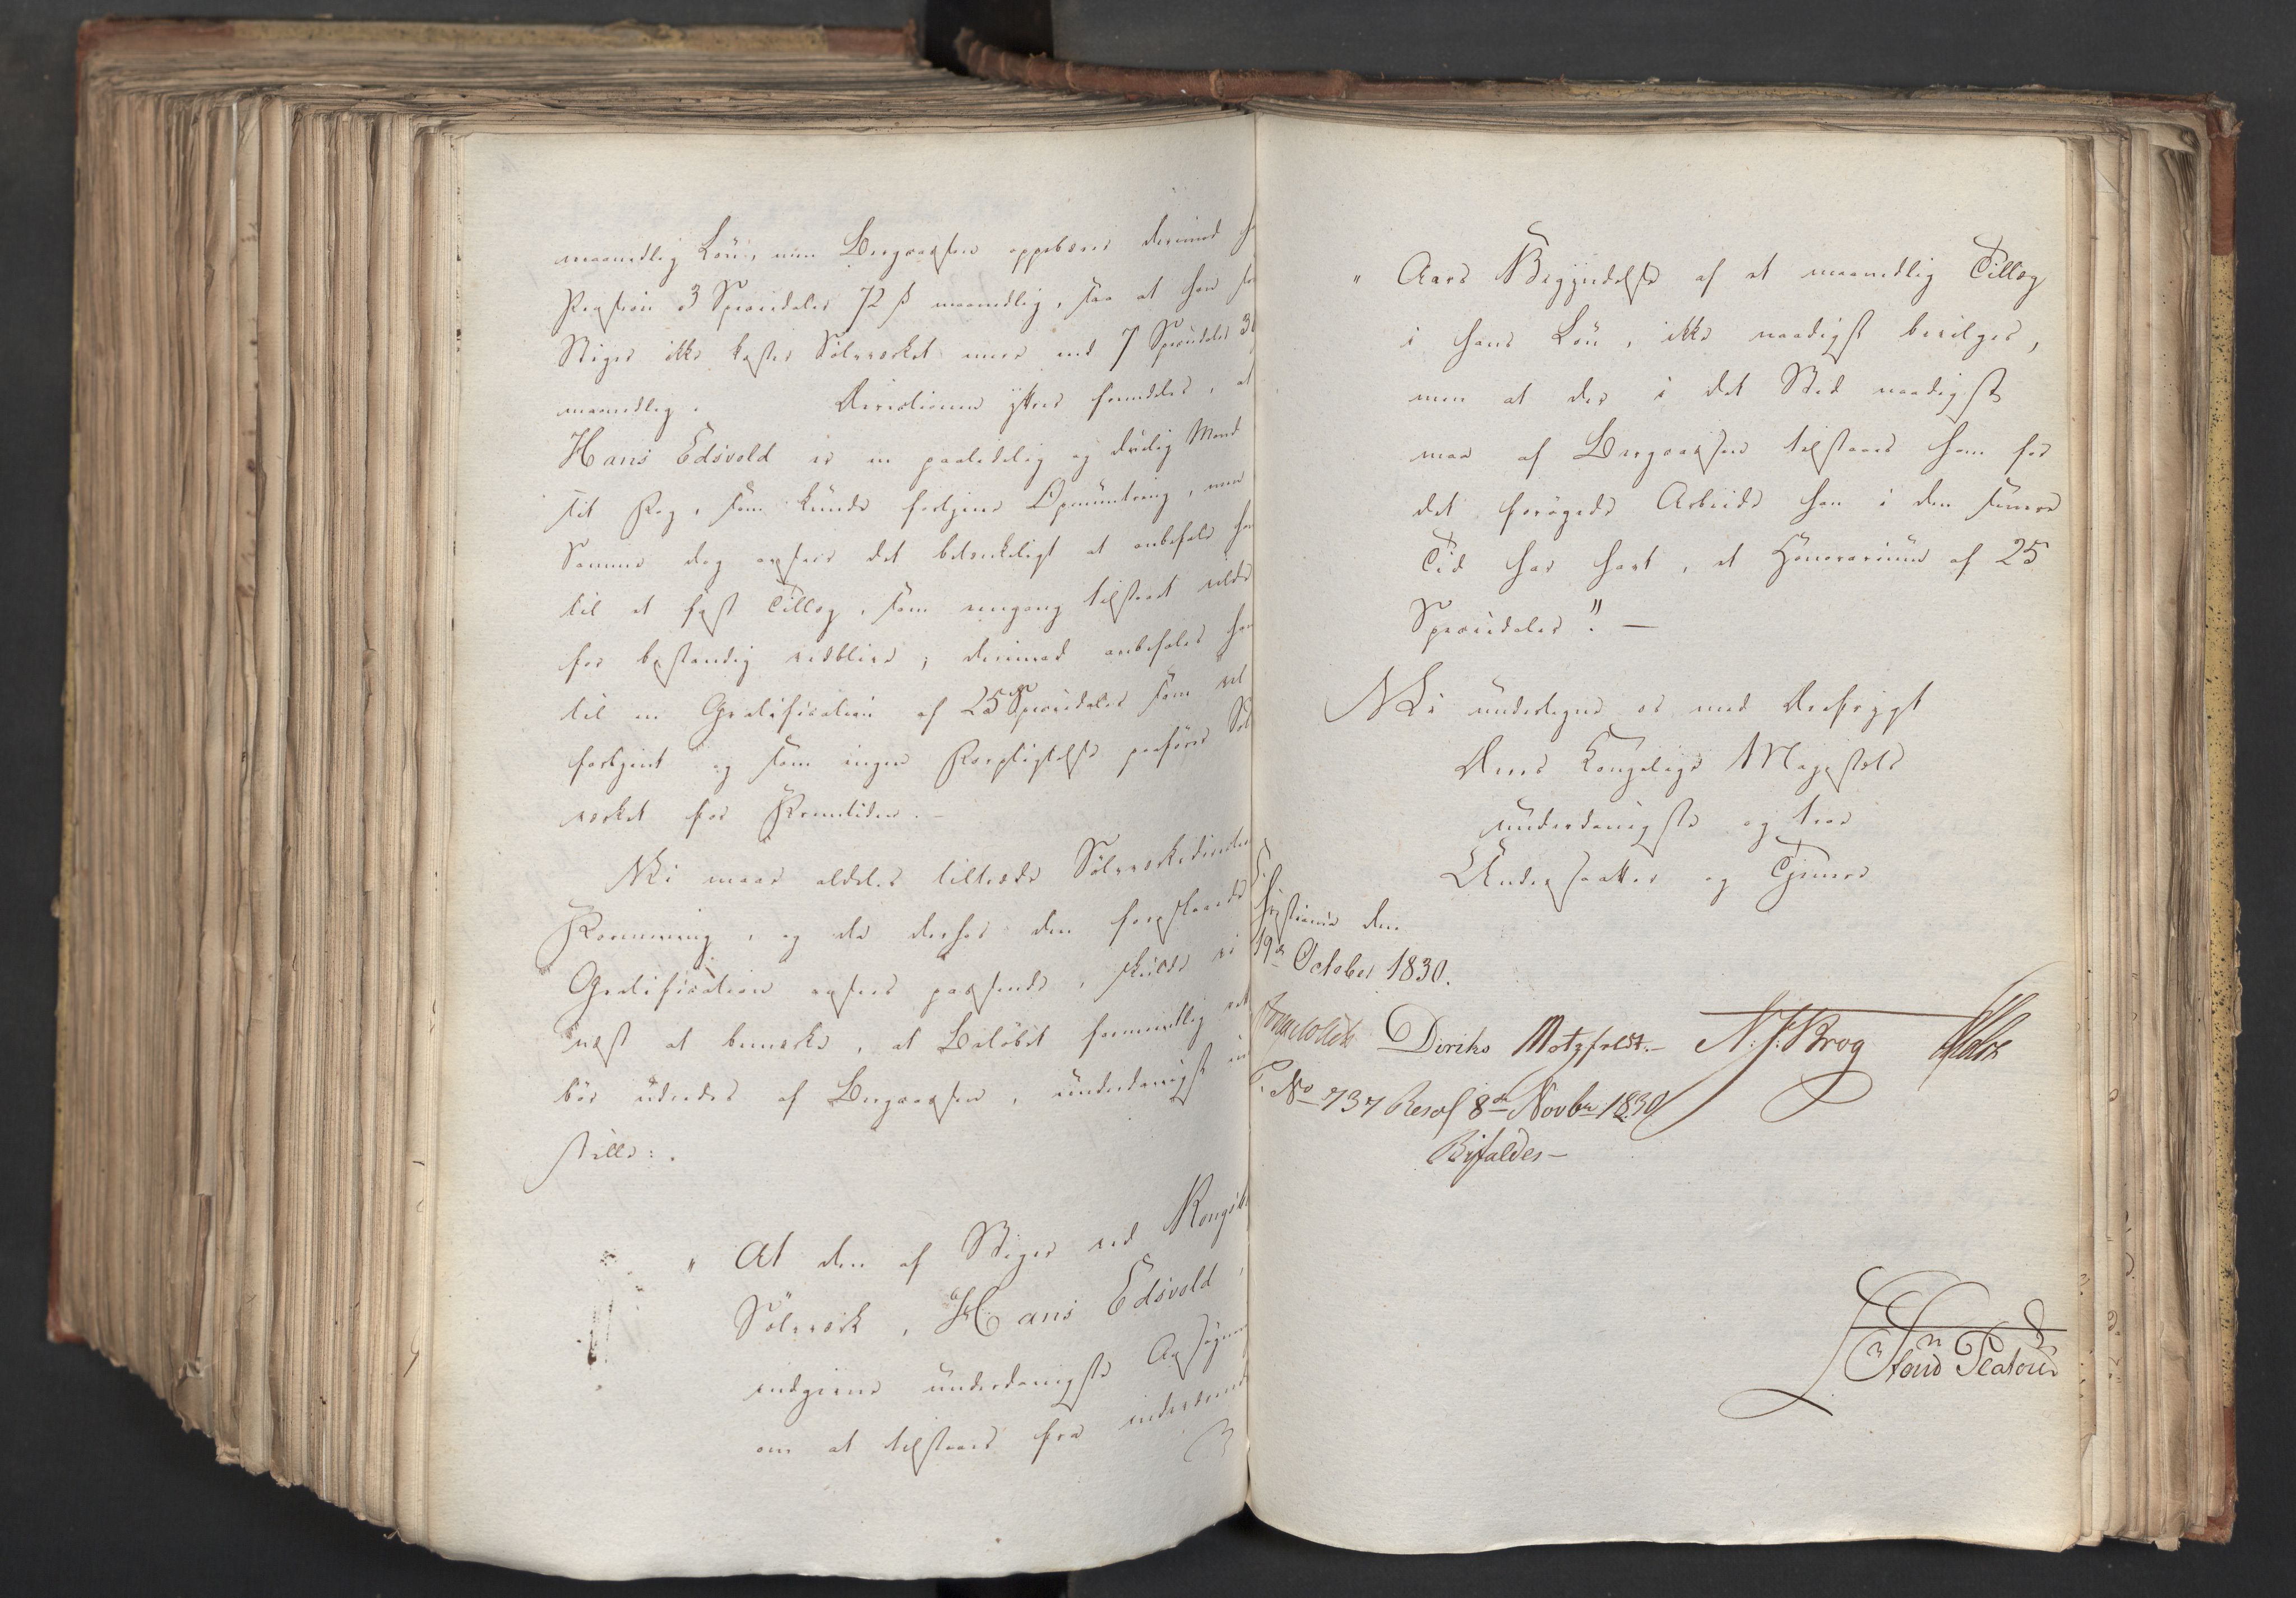 maanedlig Løn, men Bergcassen oppebærer derimod h
Pension 3 Speciedaler 72 ß maanedlig, saa at han som
Stiger ikke koster Sølvværket mere end 7 Speciedaler 3
maanedlig. Directionen yttrer fremdeles, at
Hans Edsvold er en paalidelig og duelig Mand
i sit Fag, som kunde fortjene Opmuntring, men
Samme dog anseer det betænkeligt at anbefale ham
til et fast Tillæg, som eengang tilstaaet vilde
for bestandig vedblive; derimod anbefales han
til en Gratification af 25 Speciedaler som vel
fortjent og som ingen Forpligtelse paafører Søl
værket for Fremtiden. –
Vi maae aldeles tiltræde Sølvværksdirectio
Formening, og da derhos den foreslaaede
Gratification ansees passende, skulde vi
næst at bemærke, at Beløbet formeentlig
bør udredes af Bergcassen, underdanigst in
stille:
" At den af Stiger ved Kongsb
Sølvværk, Hans Edsvold,
indgivne underdanigste Ansøgning
om at tilstaaes fra indeværende
" Aars Begyndelse af et maanedlig Tillæg
i hans Løn, ikke naadigst bevilges,
men at der i det Sted naadigst
maa af Bergcassen tilstaaes ham for
det forøgede Arbeide han i den senere
Tid har havt, et Honorarium af 25
Speciedaler". –
Vi undertegne os med Ærefrygt
Deres Kongelige Majestæts
underdanigste og troe
Undersaatter og Tjenere
Christiania den
19de October 1830.
Diriks Motzfeldt. – N. J. Krog Holst
P. No 737 Resol 8de Novbr 1830
Bifaldes –